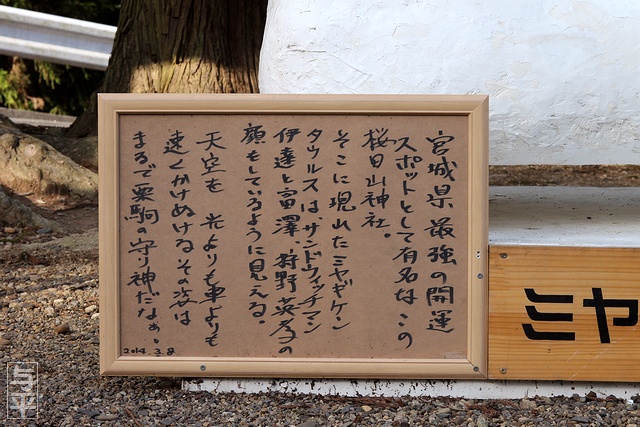 宮城県最強の開運
スポットとして有名なこの
桜田山神社。
そこに現れたミヤギケン
タウルスは、サンドウィッチマン
伊達と富澤、狩野英孝の
顔もしているように見える。
天空を 光よりも車よりも
速くかけぬけるその姿は
まるで栗駒の守り神だなぁ。
2014.3.8
ミヤ